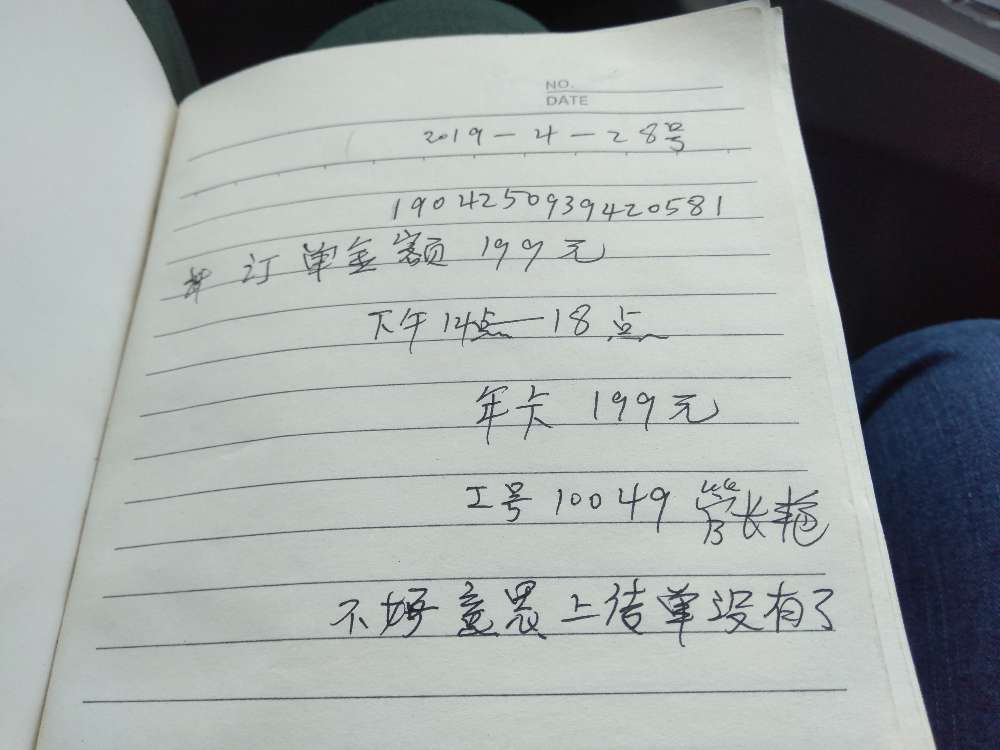 NO.
DATE
2019-4-28号
190425093942058​1
订单金额 199元
下午14点—18点
年卡 199元
工号 10049 管长艳
不好意思上传单没有了